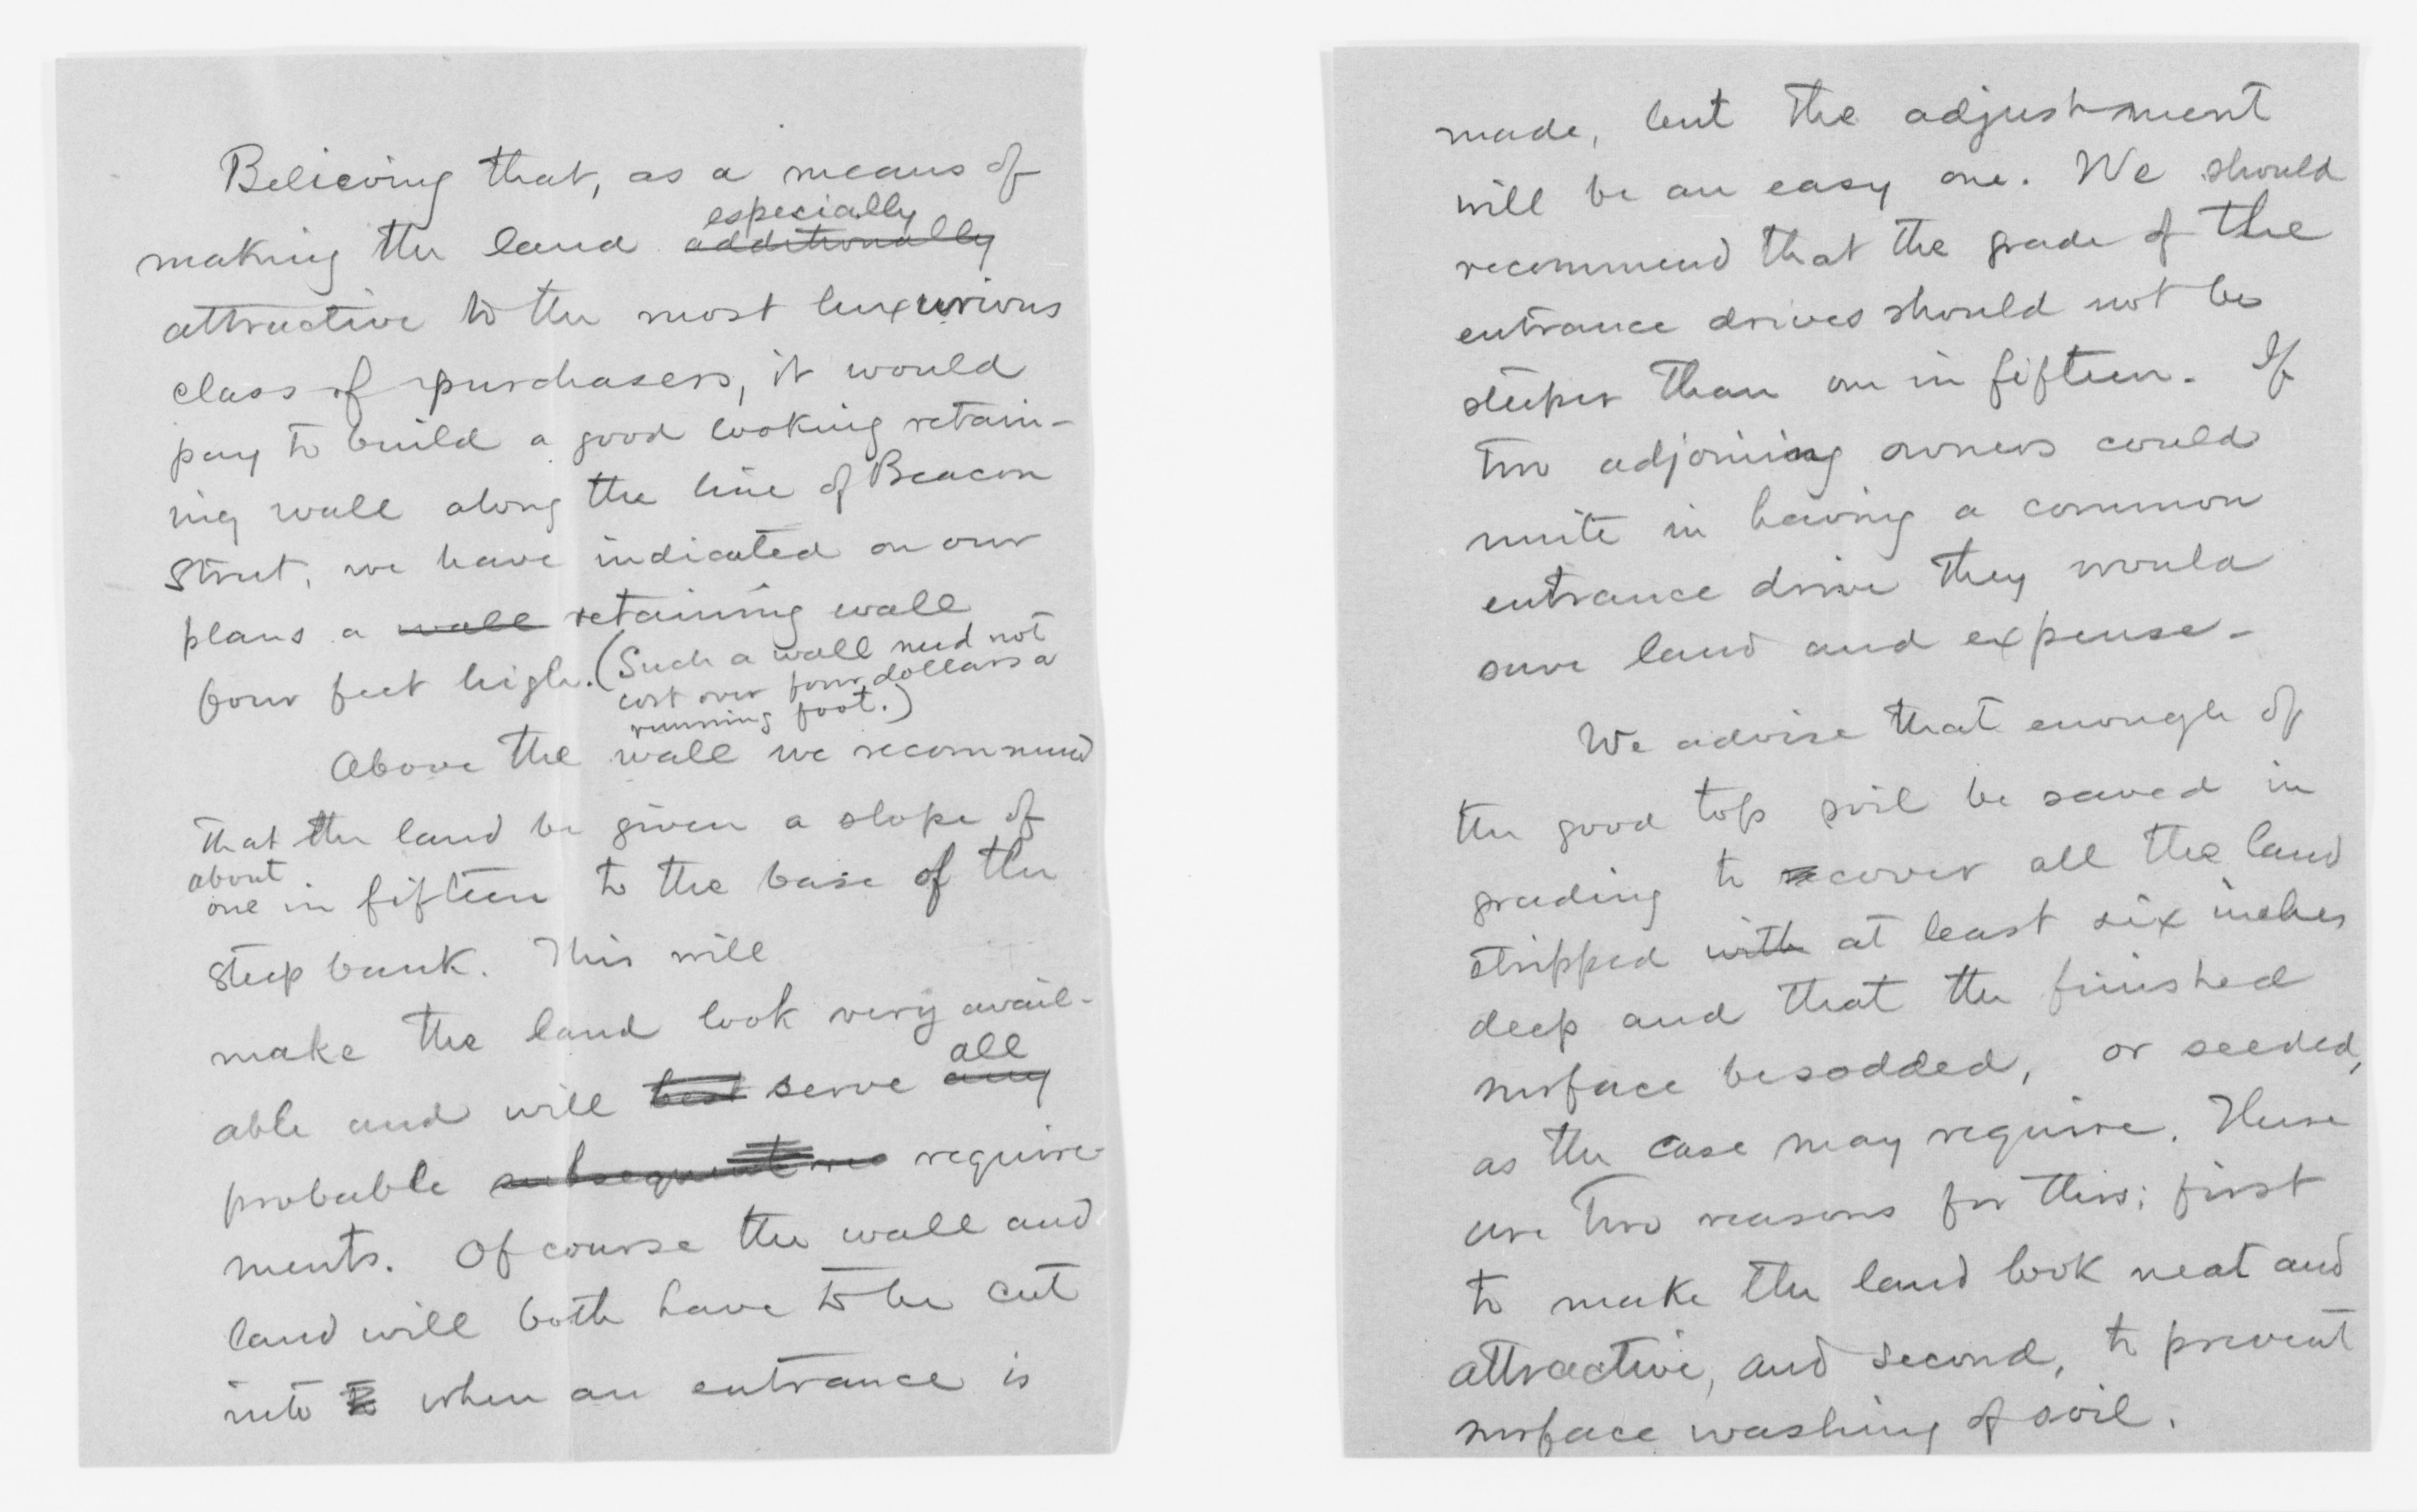 Believing that, as a means of
especially
making the land additionally
attractive to the most luxurious
class of purchasers, it would
pay to build a good looking retain-
ing wall along the line of Beacon
Street, we have indicated on our
plans a wall retaining wall
four feet high. (Such a wall need not
cost over four dollars a
running foot.)
Above the wall we recommend
that the land be given a slope of
about
one in fifteen to the base of the
steep bank. This will
make the land look very avail-
all
able and will best serve any
probable subsequent requirе-
ments. Of course the wall and
land will both have to be cut
into when an entrance is
made, but the adjustment
will be an easy one. We should
recommend that the grade of the
entrance drives should not be
steeper than one in fifteen. If
two adjoining owners could
unite in having a common
entrance drive they would
save land and expense.
We advise that enough of
the good top soil be saved in
grading to cover all the land
stripped with at least six inches
deep and that the finished
surface be sodded, or seeded,
as the case may require. There
are two reasons for this; first
to make the land look neat and
attractive, and second, to prevent
surface washing of soil.